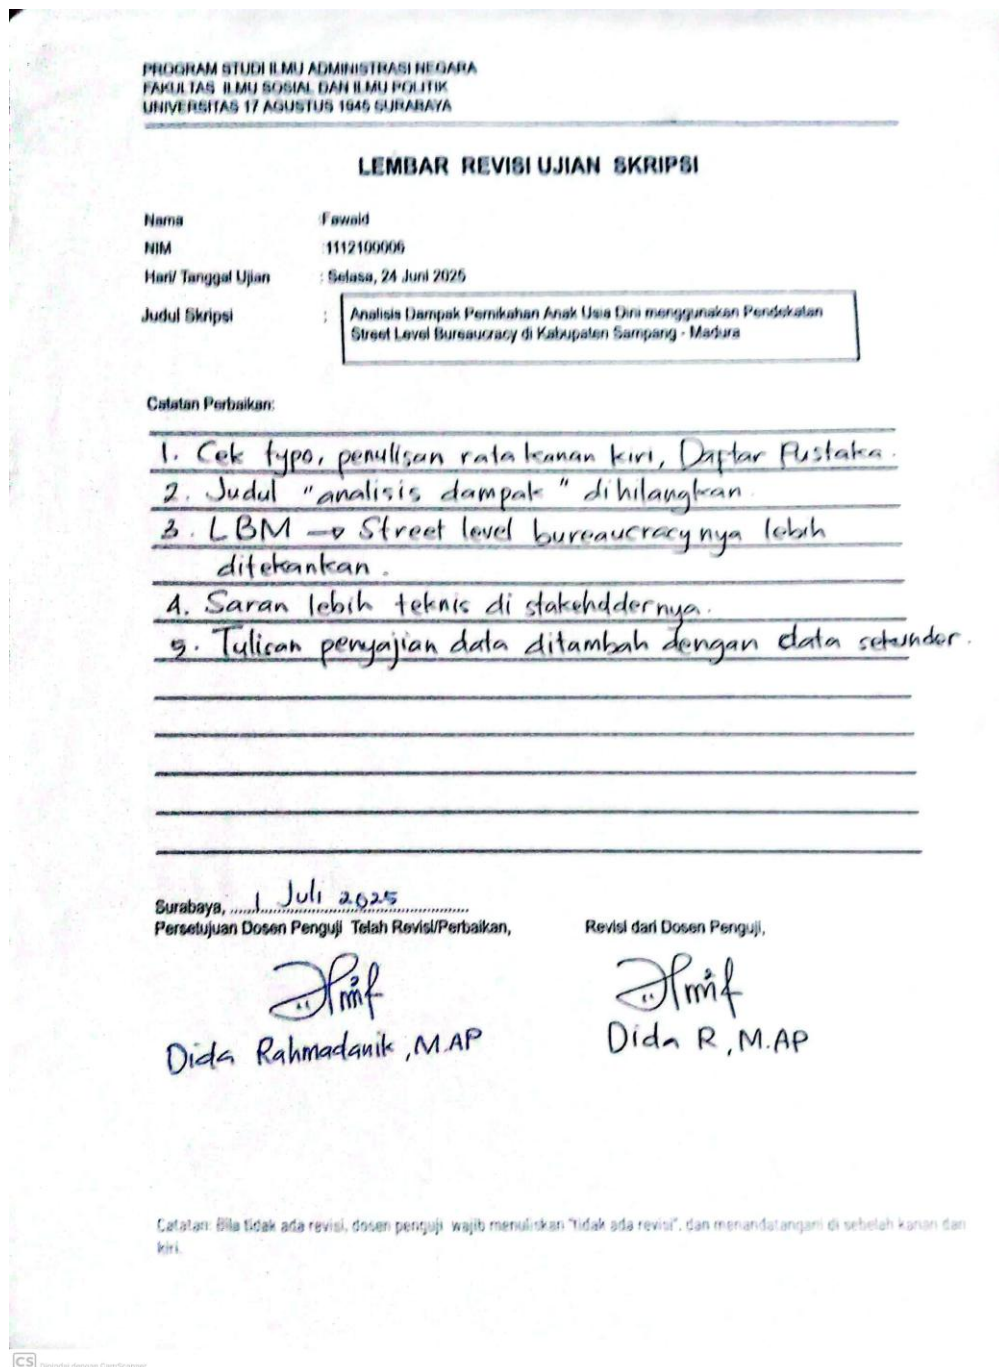 PROGRAM STUDI ILMU ADMINISTRASI NEGARA
FAKULTAS ILMU SOSIAL DAN ILMU POLITIK
UNIVERSITAS 17 AGUSTUS 1945 SURABAYA
LEMBAR REVISI UJIAN SKRIPSI
Nama : Fawaid
NIM : 1112100006
Hari/ Tanggal Ujian : Selasa, 24 Juni 2025
Judul Skripsi : Analisis Dampak Pernikahan Anak Usia Dini menggunakan Pendekatan
Street Level Bureaucracy di Kabupaten Sampang - Madura
Catatan Perbaikan:
1. Cek typo, penulisan rata kanan kiri, Daftar Pustaka.
2. Judul "analisis dampak" dihilangkan.
3. LBM → Street level bureaucracynya lebih
ditekankan.
4. Saran lebih teknis di stakeholdernya.
5. Tulisan penyajian data ditambah dengan data sekunder.
Surabaya, 1 Juli 2025
Persetujuan Dosen Penguji Telah Revisi/Perbaikan, Revisi dari Dosen Penguji,
Dida Rahmadanik, M.AP Dida R, M.AP
Catatan: Bila tidak ada revisi, dosen penguji wajib menuliskan "tidak ada revisi", dan menandatangani di sebelah kanan dan
kiri.
CS Dipindai dengan CamScanner